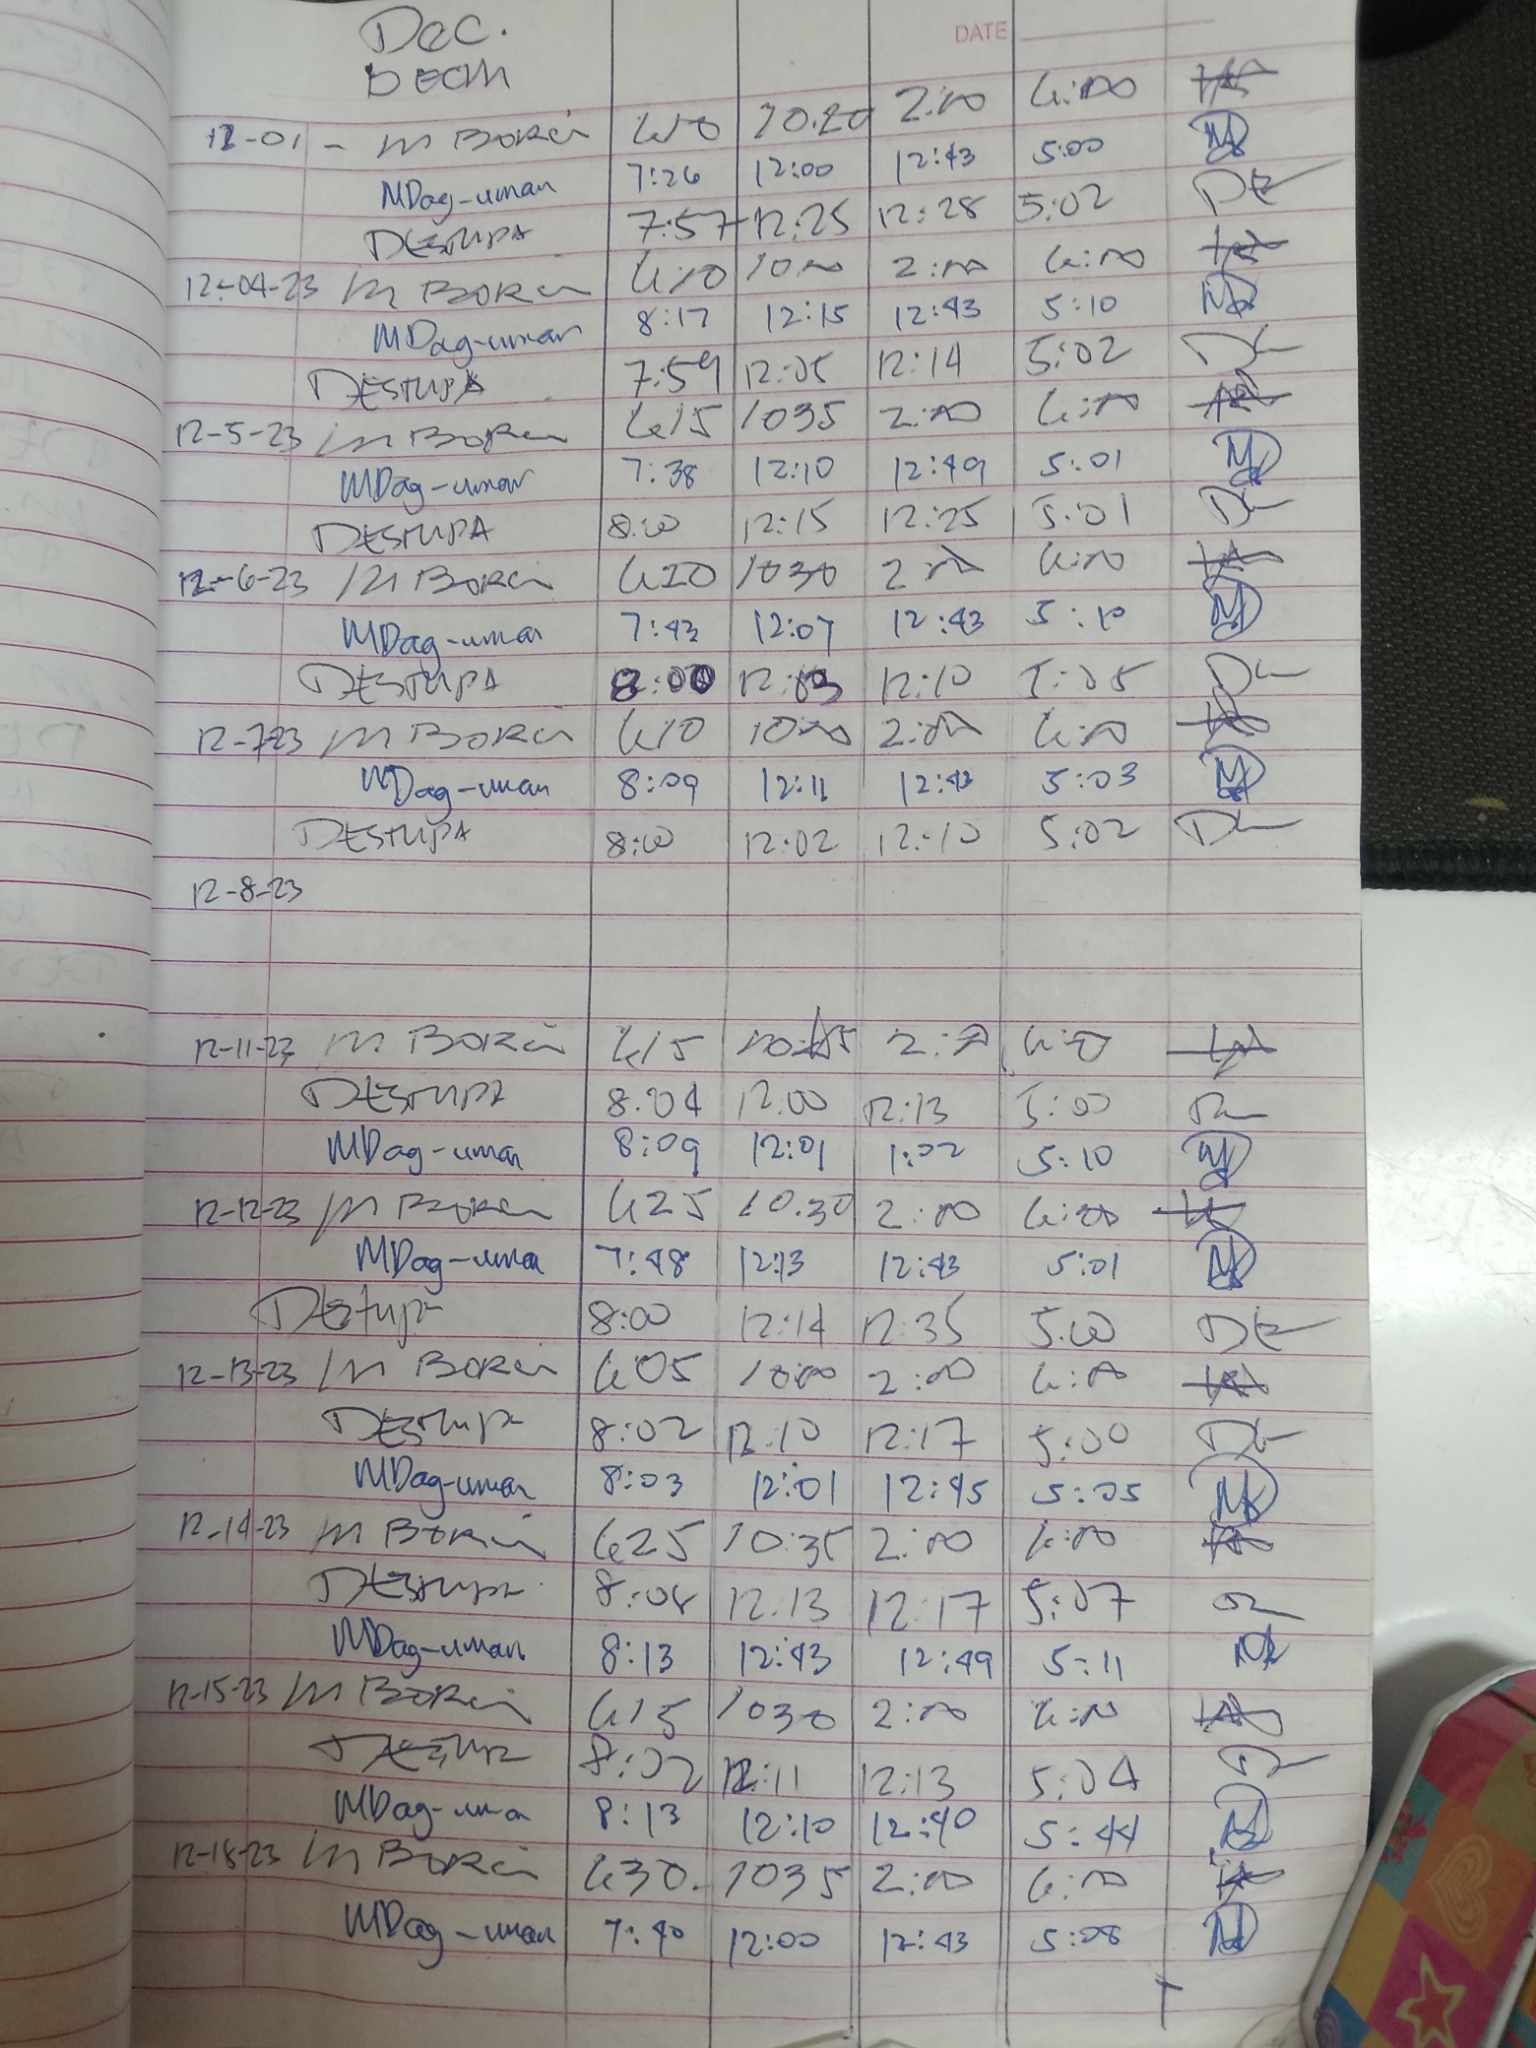 Dec.
DATE
12-01 - M BORCi 6:10 10:20 2:00 6:00
MDag-uman 7:26 12:00 12:43 5:00
DESTUPA 7:57 12:25 12:28 5:02
12-04-23 M BORCi 6:10 10:00 2:00 6:00
MDag-uman 8:17 12:15 12:43 5:10
DESTUPA 7:59 12:05 12:14 5:02
12-5-23 M BORCi 615 1035 2:00 6:00
MDag-uman 7:38 12:10 12:49 5:01
DESTUPA 8:00 12:15 12:25 5:01
12-6-23 M BORCi 610 1030 2:00 6:00
MDag-uman 7:43 12:07 12:43 5:10
DESTUPA 8:00 12:10 5:05
12-7-23 M BORCi 610 1000 2:00 6:00
MDag-uman 8:09 12:11 12:42 5:03
DESTUPA 8:00 12:02 12:10 5:02
12-8-23
12-11-23 M BORCi 615 2:00 6:00
DESTUPA 8:04 12:00 12:13 5:00
MDag-uman 8:09 12:01 1:02 5:10
12-12-23 M BORCi 625 10:30 2:00 6:00
MDag-uman 7:48 12:13 12:43 5:01
DEstupa 8:00 12:14 12:35 5:00
12-13-23 M BORCi 605 1000 2:00 6:00
DEstupa 8:02 12:10 12:17 5:00
MDag-uman 8:03 12:01 12:45 5:05
12-14-23 M BORCi 625 10:35 2:00 6:00
DEstupa 12:13 12:17 5:07
MDag-uman 8:13 12:43 12:49 5:11
12-15-23 M BORCi 615 1030 2:00 6:00
DEstupa 8:02 12:11 12:13 5:04
MDag-uman 8:13 12:10 12:40 5:44
12-18-23 M BORCi 630 1035 2:00 6:00
MDag-uman 7:40 12:00 12:43 5:08